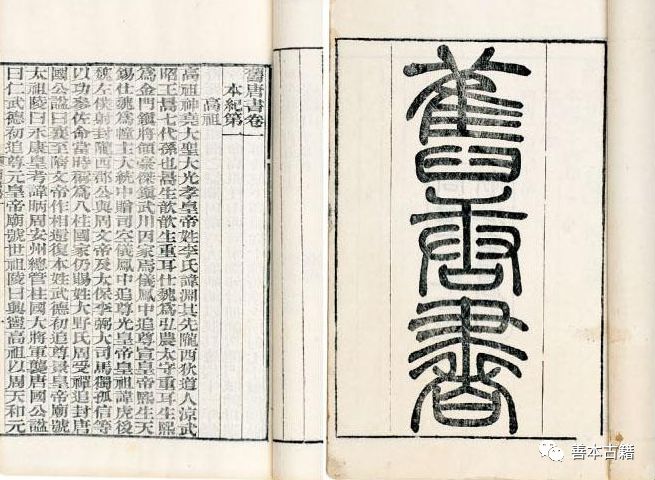 舊唐書
舊唐書卷
本紀第一
高祖
高祖神堯大聖大光孝皇帝姓李氏諱淵其先隴西狄道人涼武
昭王暠七代孫也暠生歆歆生重耳仕魏爲弘農太守重耳生熙
爲金門鎮將領豪傑鎮武川因家焉儀鳳中追尊宣皇帝熙生天
錫仕魏爲幢主大統中贈司空儀鳳中追尊光皇帝皇祖諱虎後
魏左僕射封隴西郡公與周文帝及太保李弼大司馬獨孤信等
以功參佐命當時稱爲八柱國家仍賜姓大野氏周受禪追封唐
國公諡曰襄至隋文帝作相還復本姓武德初追尊景皇帝廟號
太祖陵曰永康皇考諱昞周安州總管柱國大將軍襲唐國公諡
曰仁武德初追尊元皇帝廟號世祖陵曰興寧高祖以周天和元
善本古籍